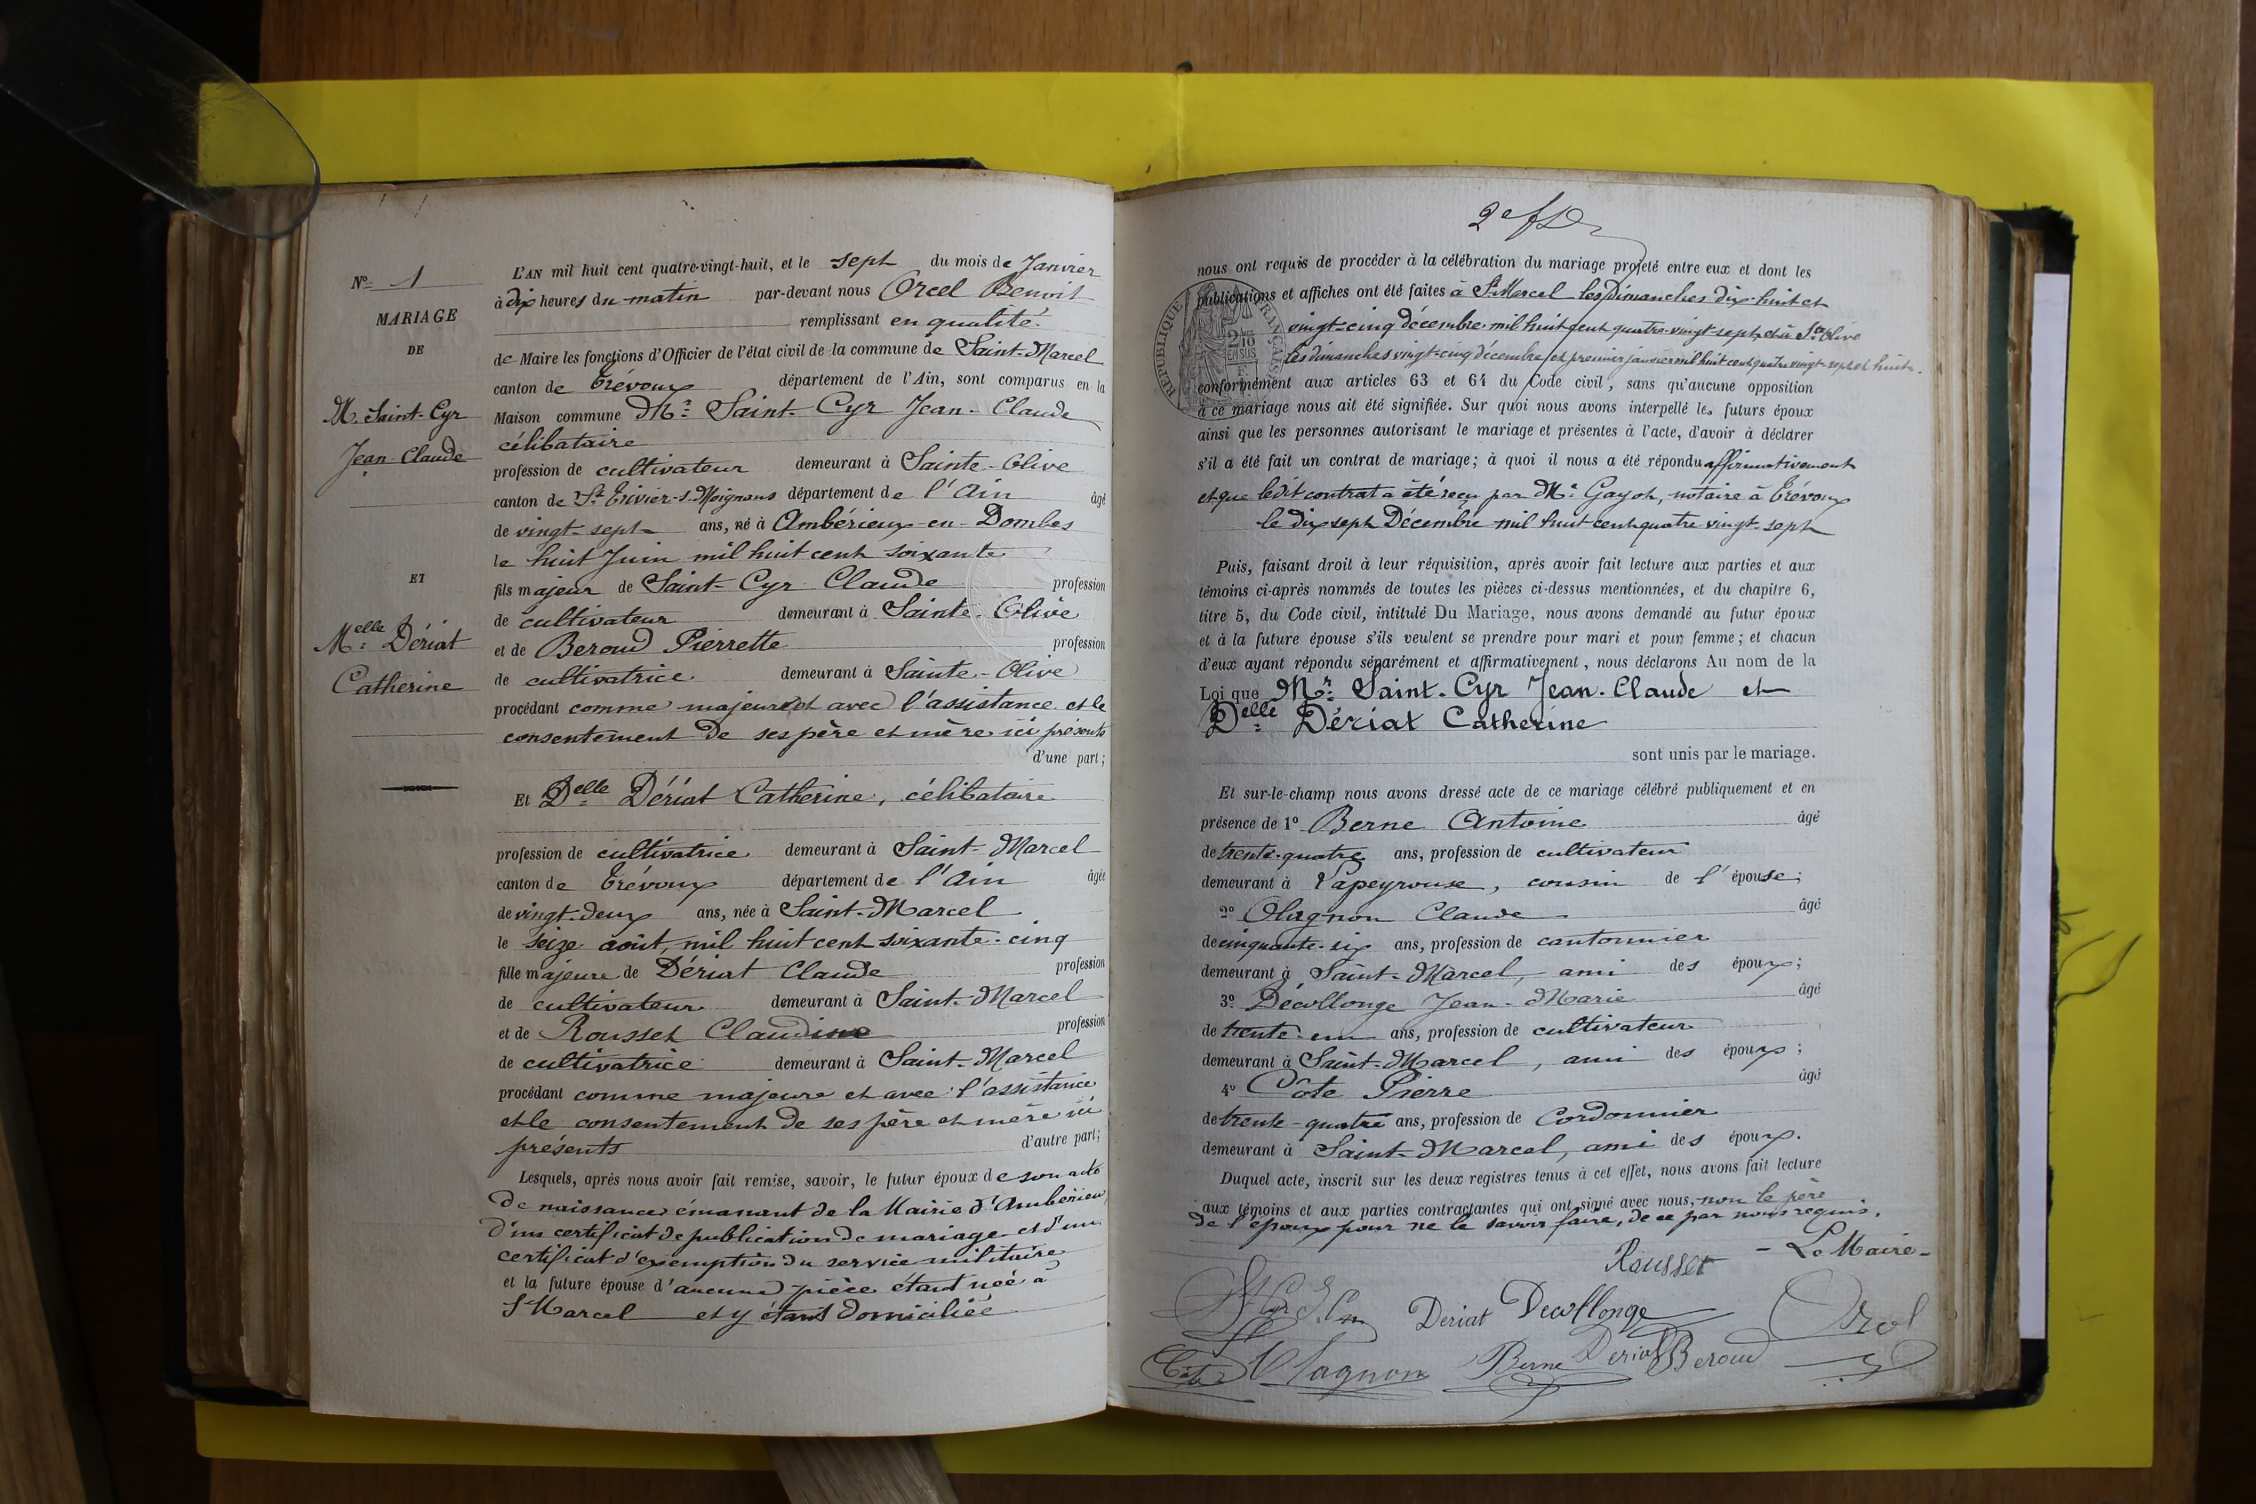 N° 1
MARIAGE
DE
M. Saint-Cyr
Jean-Claude
ET
Melle Dériat
Catherine
L'AN mil huit cent quatre-vingt-huit, et le sept du mois de Janvier
à dix heures du matin par-devant nous Orcel Benoit
remplissant en qualité
de Maire les fonctions d'Officier de l'état civil de la commune de Saint-Marcel
canton de Trévoux département de l'Ain, sont comparus en la
Maison commune Mr Saint-Cyr Jean-Claude
célibataire
profession de cultivateur demeurant à Sainte-Olive
canton de St Trivier-s-Moignans département de l'Ain âgé
de vingt-sept ans, né à Ambérieux-en-Dombes
le huit Juin mil huit cent soixante
fils majeur de Saint-Cyr Claude profession
de cultivateur demeurant à Sainte-Olive
et de Beroud Pierrette profession
de cultivatrice demeurant à Sainte-Olive
procédant comme majeur et avec l'assistance et le
consentement de ses père et mère ici présents
d'une part;
Et Delle Dériat Catherine, célibataire
profession de cultivatrice demeurant à Saint-Marcel
canton de Trévoux département de l'Ain âgée
de vingt-deux ans, née à Saint-Marcel
le seize août mil huit cent soixante-cinq
fille majeure de Dériat Claude profession
de cultivateur demeurant à Saint-Marcel
et de Rousset Claudine profession
de cultivatrice demeurant à Saint-Marcel
procédant comme majeure et avec l'assistance
et le consentement de ses père et mère ici
présents d'autre part;
Lesquels, après nous avoir fait remise, savoir, le futur époux de son acte
de naissance émanant de la Mairie d'Ambérieux
d'un certificat de publication de mariage et d'un
certificat d'exemption du service militaire
et la future épouse d'aucune pièce étant née à
St Marcel et y étant domiciliée
2e
nous ont requis de procéder à la célébration du mariage projeté entre eux et dont les
publications et affiches ont été faites à St Marcel les Dimanches dix-huit et
vingt-cinq décembre mil huit cent quatre-vingt-sept et à Ste Olive
les dimanches vingt-cinq décembre et premier janvier mil huit cent quatre vingt-sept et huit
conformément aux articles 63 et 64 du Code civil, sans qu'aucune opposition
à ce mariage nous ait été signifiée. Sur quoi nous avons interpellé les futurs époux
ainsi que les personnes autorisant le mariage et présentes à l'acte, d'avoir à déclarer
s'il a été fait un contrat de mariage; à quoi il nous a été répondu affirmativement
et que ledit contrat a été reçu par Me Gayot, notaire à Trévoux
le dix sept Décembre mil huit cent quatre vingt-sept
Puis, faisant droit à leur réquisition, après avoir fait lecture aux parties et aux
témoins ci-après nommés de toutes les pièces ci-dessus mentionnées, et du chapitre 6,
titre 5, du Code civil, intitulé Du Mariage, nous avons demandé au futur époux
et à la future épouse s'ils veulent se prendre pour mari et pour femme; et chacun
d'eux ayant répondu séparément et affirmativement, nous déclarons Au nom de la
Loi que Mr Saint-Cyr Jean-Claude et
Delle Dériat Catherine
sont unis par le mariage.
Et sur-le-champ nous avons dressé acte de ce mariage célébré publiquement et en
présence de 1° Berne Antoine âgé
de trente-quatre ans, profession de cultivateur
demeurant à Lapeyrouse, cousin de l'épouse;
2° Olagnon Claude âgé
de cinquante-six ans, profession de cantonnier
demeurant à Saint-Marcel, ami des époux;
3° Décollonge Jean-Marie âgé
de trente-un ans, profession de cultivateur
demeurant à Saint-Marcel, ami des époux;
4° Côte Pierre âgé
de trente-quatre ans, profession de Cordonnier
demeurant à Saint-Marcel, ami des époux.
Duquel acte, inscrit sur les deux registres tenus à cet effet, nous avons fait lecture
aux témoins et aux parties contractantes qui ont signé avec nous, non le père
de l'époux pour ne le savoir faire, de ce par nous requis.
Rousset Le Maire
St Cyr Dériat Decollonge Orcel
Côte Olagnon Berne Deriat Beroud
RÉPUBLIQUE FRANÇAISE